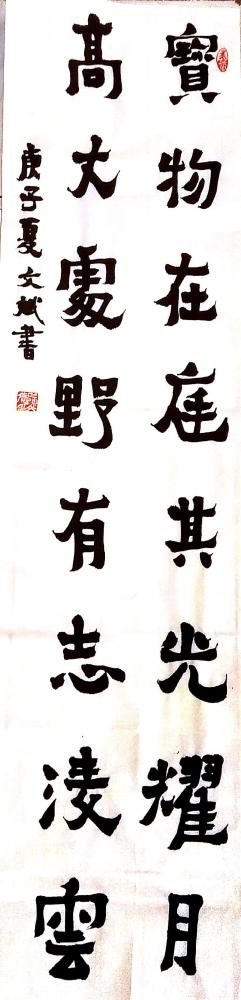 寳物在庭其光耀月
高文處野有志淩雲
庚子夏文斌書